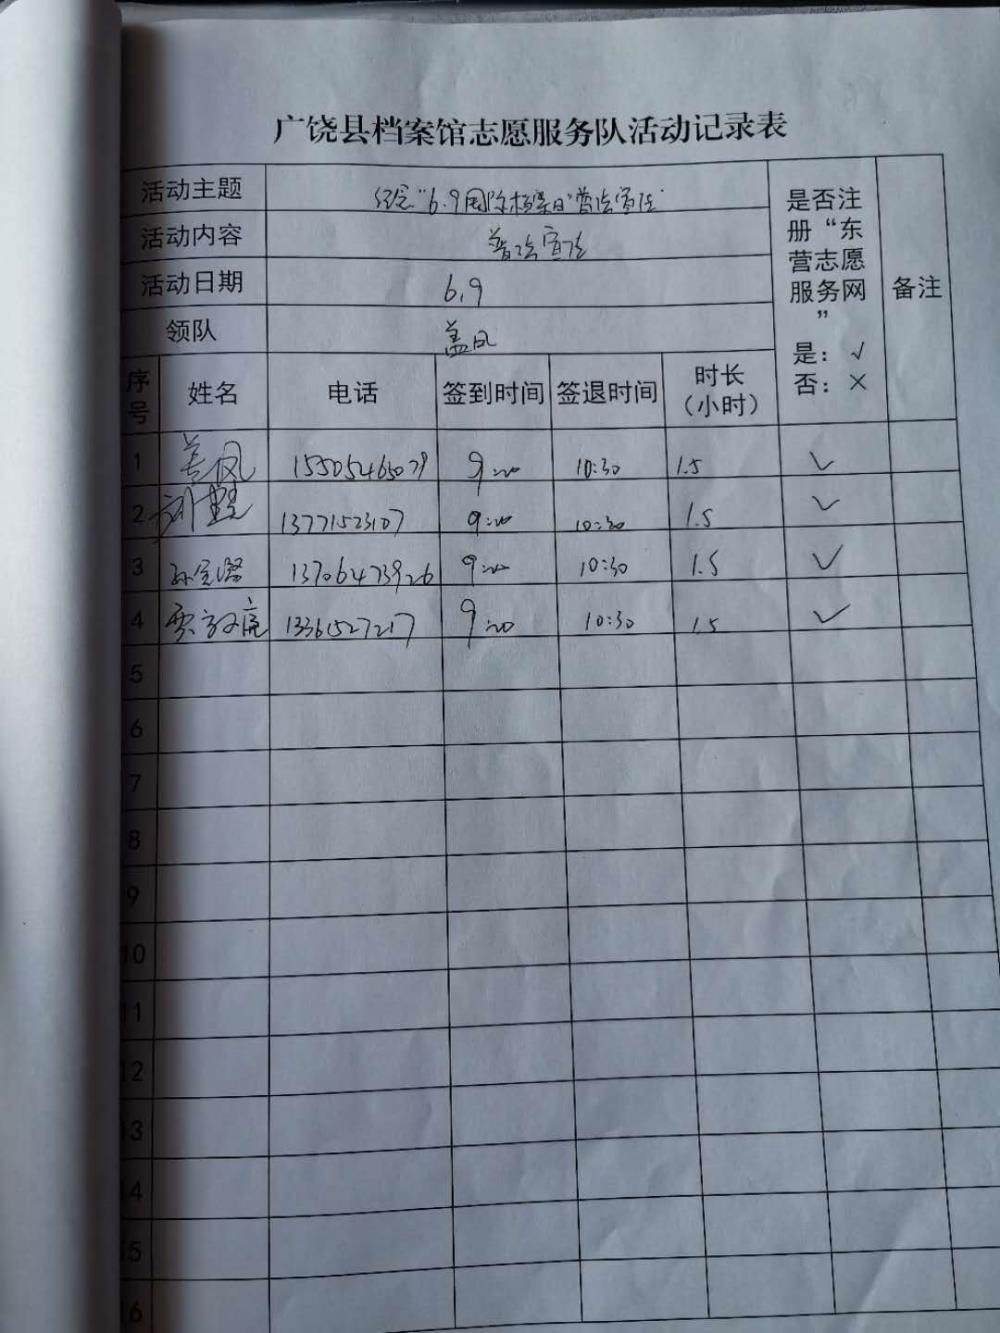 广饶县档案馆志愿服务队活动记录表
活动主题 纪念"6.9国际档案日"普法宣传 是否注册"东营志愿服务网" 是：√ 否：× 备注
活动内容 普法宣传
活动日期 6.9
领队 盖凤
序号 姓名 电话 签到时间 签退时间 时长（小时）
1 盖凤 15505465079 9:00 10:30 1.5 √
2 13771523107 9:00 10:30 1.5 √
3 13706473926 9:00 10:30 1.5 √
4 贾 13361527217 9:00 10:30 1.5 √
5
6
7
8
9
10
11
12
13
14
15
16